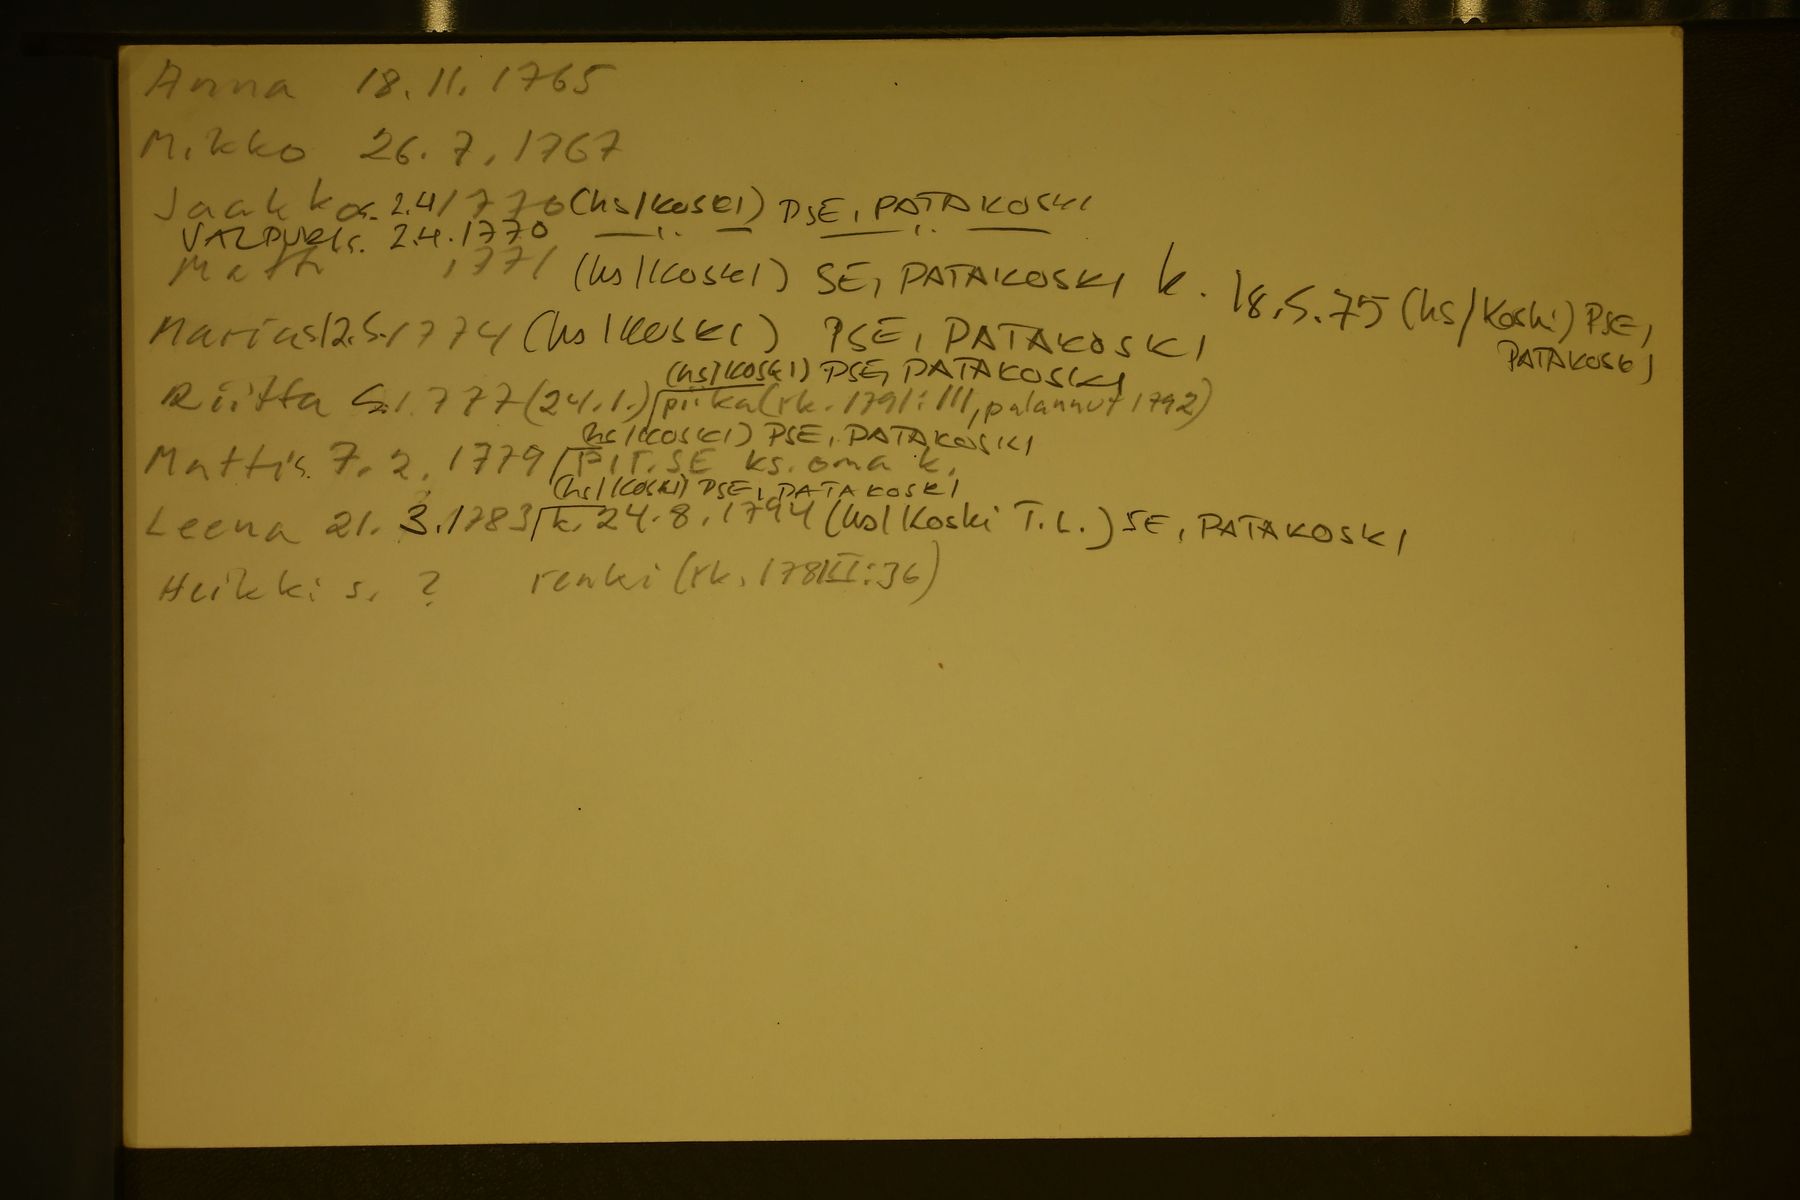 Anna 18.11.1765
Mikko 26.7.1767
Jaakko s. 2.4/1770 (hs/Koski) PSE, PATAKOSKI
VALPURI s. 2.4.1770 —"— —"—
Matti 1771 (hs/Koski) SE, PATAKOSKI k. 18.5.75 (hs/Koski) PSE,
PATAKOSKI
Maria s. 12.5.1774 (hs/KOSKI) PSE, PATAKOSKI
(hs/KOSKI) PSE, PATAKOSKI
Riitta s. 1777 (24.1.) piika (rk. 1791:III, palannut 1792)
(hs/KOSKI) PSE, PATAKOSKI
Matti s. 7.2.1779 PIT. SE ks. oma k.
(hs/KOSKI) PSE, PATAKOSKI
Leena 21.3.1783 k. 24.8.1794 (hs/Koski T.L.) SE, PATAKOSKI
Heikki s. ? renki (rk. :36)